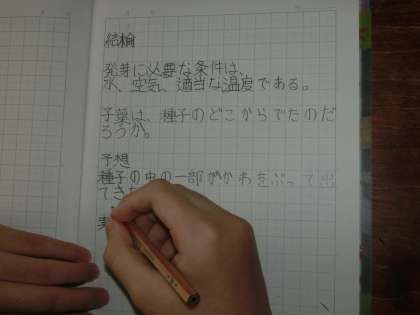 結論
発芽に必要な条件は、
水、空気、適当な温度である。
子葉は、種子のどこからでたのだ
ろうか。
予想
種子の中の一部がかわをぶって出
てき